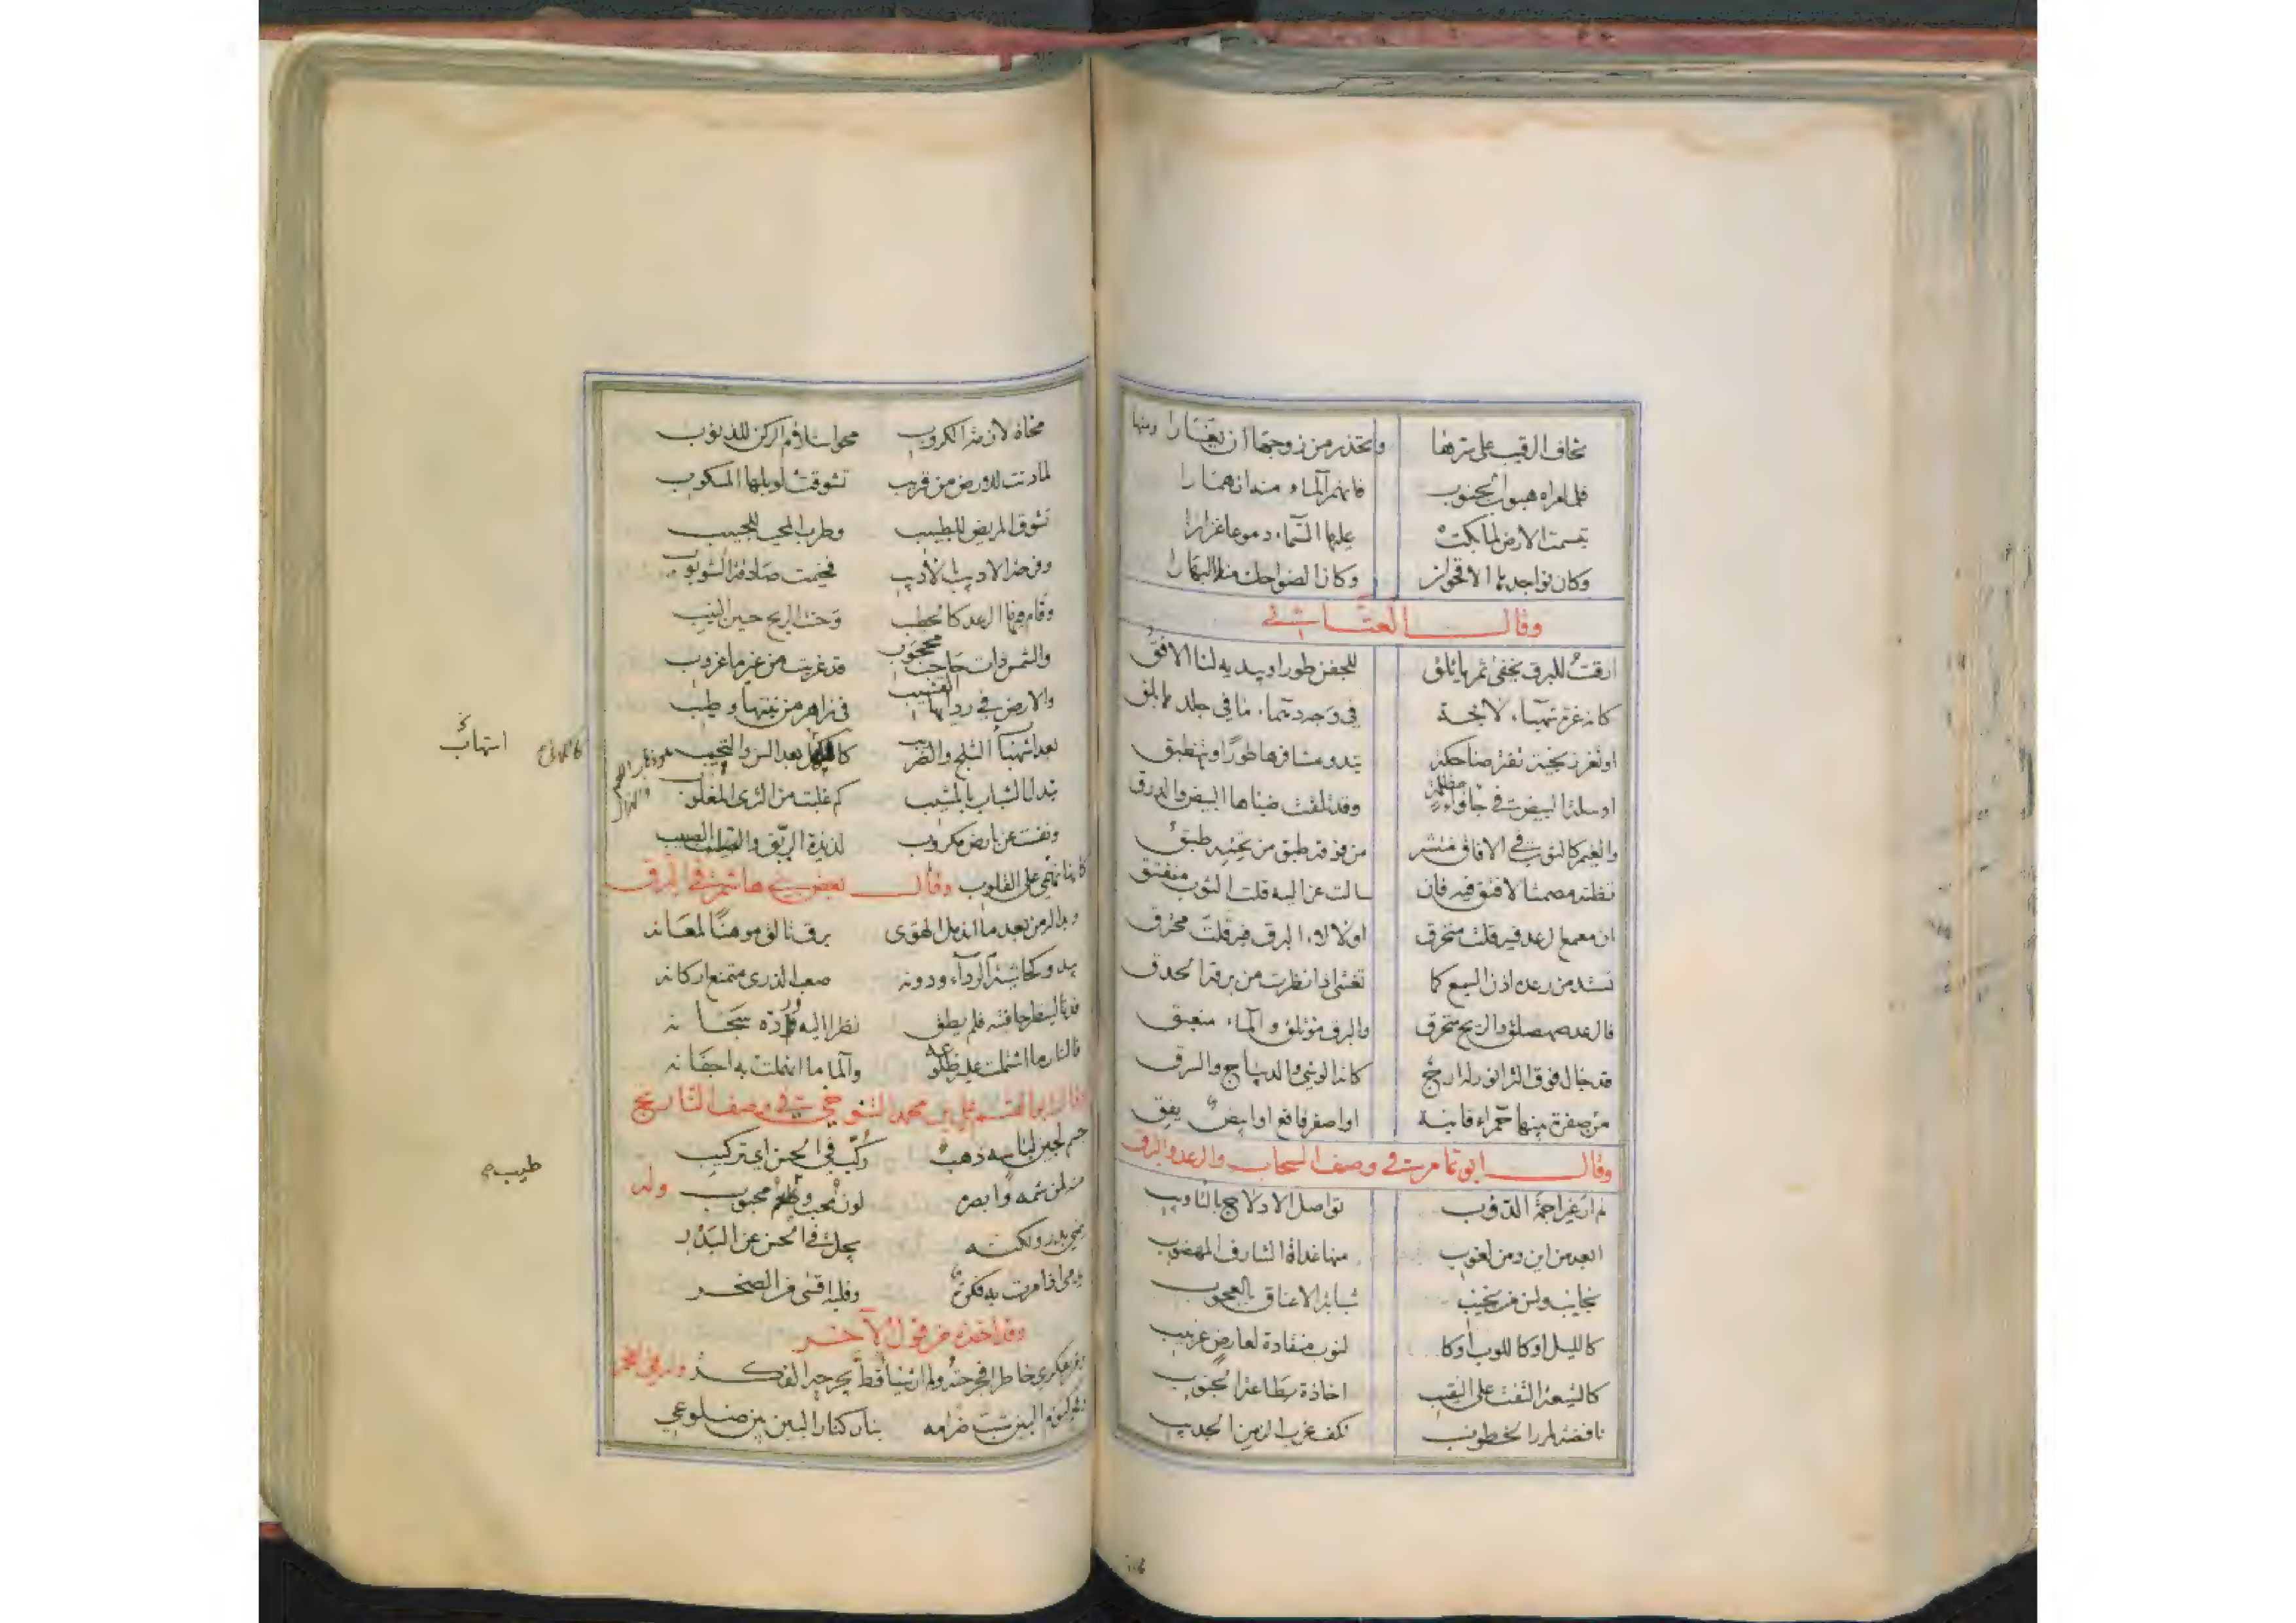 يخاف الرقيب على سرها ويحذر من زوجها ان يغارا ومنها
فلما راه هبوب الجنوب فانهمر الماء منه انهمارا
تبسمت الارض لما بكت عليها السماء دموعا غزارا
وكان نواجدها الاقحوان وكان الضواحك منها البهارا
وقال العتابي
ارقت للبرق يخفى ثم ياتلق للجفن طورا ويبديه لنا الافق
كانه غرة شهباء لائحة في وجه دهماء ما في جلدها بلق
او ثغر زنجية تفتر ضاحكة تبدو مشافرها طورا وتنطبق
او سلة البيض في جاواء مظلمة وقد تلقت ضباها البيض والدرق
والغيم كالثوب في الافاق منتشر من فوقه طبق من تحته طبق
تظنه مصمتا لا فتق فيه فان سالت عزاليه قلت الثوب منفتق
ان معمع الرعد فيه قلت منخرق او لالا البرق فيه قلت محترق
تستك من رعده اذن السميع كما تعشى اذا نظرت من برقه الحدق
فالرعد صهصلق والريح منخرق والبرق مؤتلق والماء منبعق
قد حال فوق الثرى نور له ارج كانه الوشي والديباج والسرق
من صفرة بينها حمراء قانية او اصفر فاقع او ابيض يقق
وقال ابو تمام في وصف السحاب والرعد والبرق
لم ار غيرا جمة الدؤوب تواصل الادلاج بالتاويب
ابعد من اين ومن لغوب منها غداة الشارف المهضوب
نجايبا وليس من نجيب شبابة الاعناق بالعجوب
كالليل او كاللوب او كا لنوب منقادة لعارض غربيب
كالشيعة التفت على النقيب اخاذة بطاعة الجنوب
ناقضة لمرر الخطوب تكف غرب الزمن الجديب
محاة للازمة الكروب محو استلام الركن للذنوب
لما دنت للارض من قريب تشوقت لوبلها المسكوب
تشوق المريض للطبيب وطرب المحب للحبيب
وفرحة الاديب بالاديب فخيمت صادقة الشؤبوب
وقام فيها الرعد كالخطيب وحنت الريح حنين النيب
والشمس ذات حاجب محجوب قد غربت من غير ما غروب
والارض في ردائها القشيب في زاهر من نبتها رطيب
بعد اشهباب الثلج والضريب كالكهل بعد السن والتحنيب
تبدل الشباب بالمشيب كم غلبت من الثرى المغلوب
ونفست عن بارض مكروب لذيذة الريق والصبيب
كانها تهمي على القلوب وقال بعض بني هاشم في البرق
وبدا له من بعد ما اندمل الهوى برق تالق موهنا لمعانه
يبدو كحاشية الرداء ودونه صعب الذرى متمنع اركانه
فدنا لينظر فلم يطق نظرا اليه ورده سجانه
فالنار ما اشتملت عليه ضلوعه والماء ما انهملت به اجفانه
وقال ابو القاسم علي بن محمد التنوخي في وصف النارنج
جسم لجين لباسه ذهب ركب في الحسن اي تركيب
فيه لمن شمه وابصره لون محب وطعم محبوب وله
يجل في الحسن عن البدر
وقلبه اقسى من الصخر
وقد اخذه من قول الاخر
فكري خاطرا فجرحته ولم ار شيئا قط يجرحه الفكر
البين شبت ضرامه بنار كنار البين بين ضلوعي
طيب